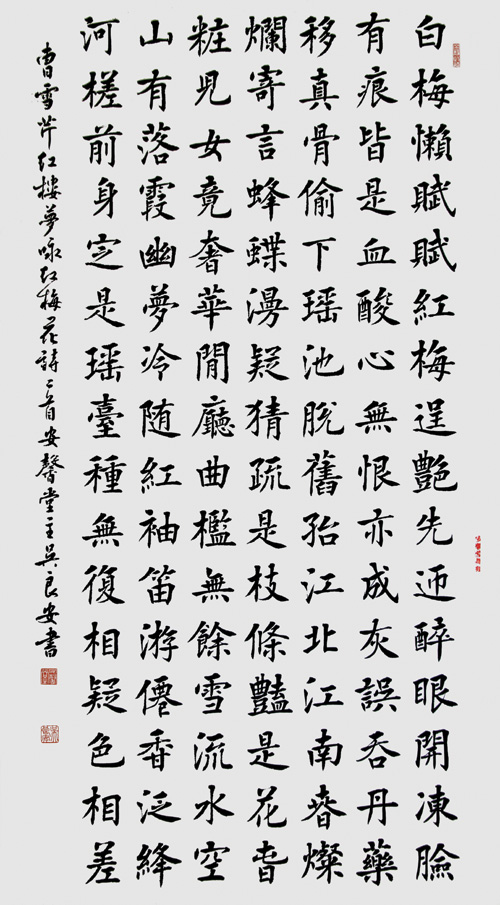 白梅懶賦賦紅梅逞艷先迎醉眼開凍臉
有痕皆是血酸心無恨亦成灰誤吞丹藥
移真骨偷下瑶池脫舊胎江北江南春燦
爛寄言蜂蝶漫疑猜疏是枝條豔是花春
粧児女竟奢華閒廳曲檻無餘雪流水空
山有落霞幽夢冷随紅袖笛游僊香泛絳
河槎前身定是瑶臺種無復相疑色相差
曹雪芹红樓夢咏红梅花詩二首安馨堂主吴良安書